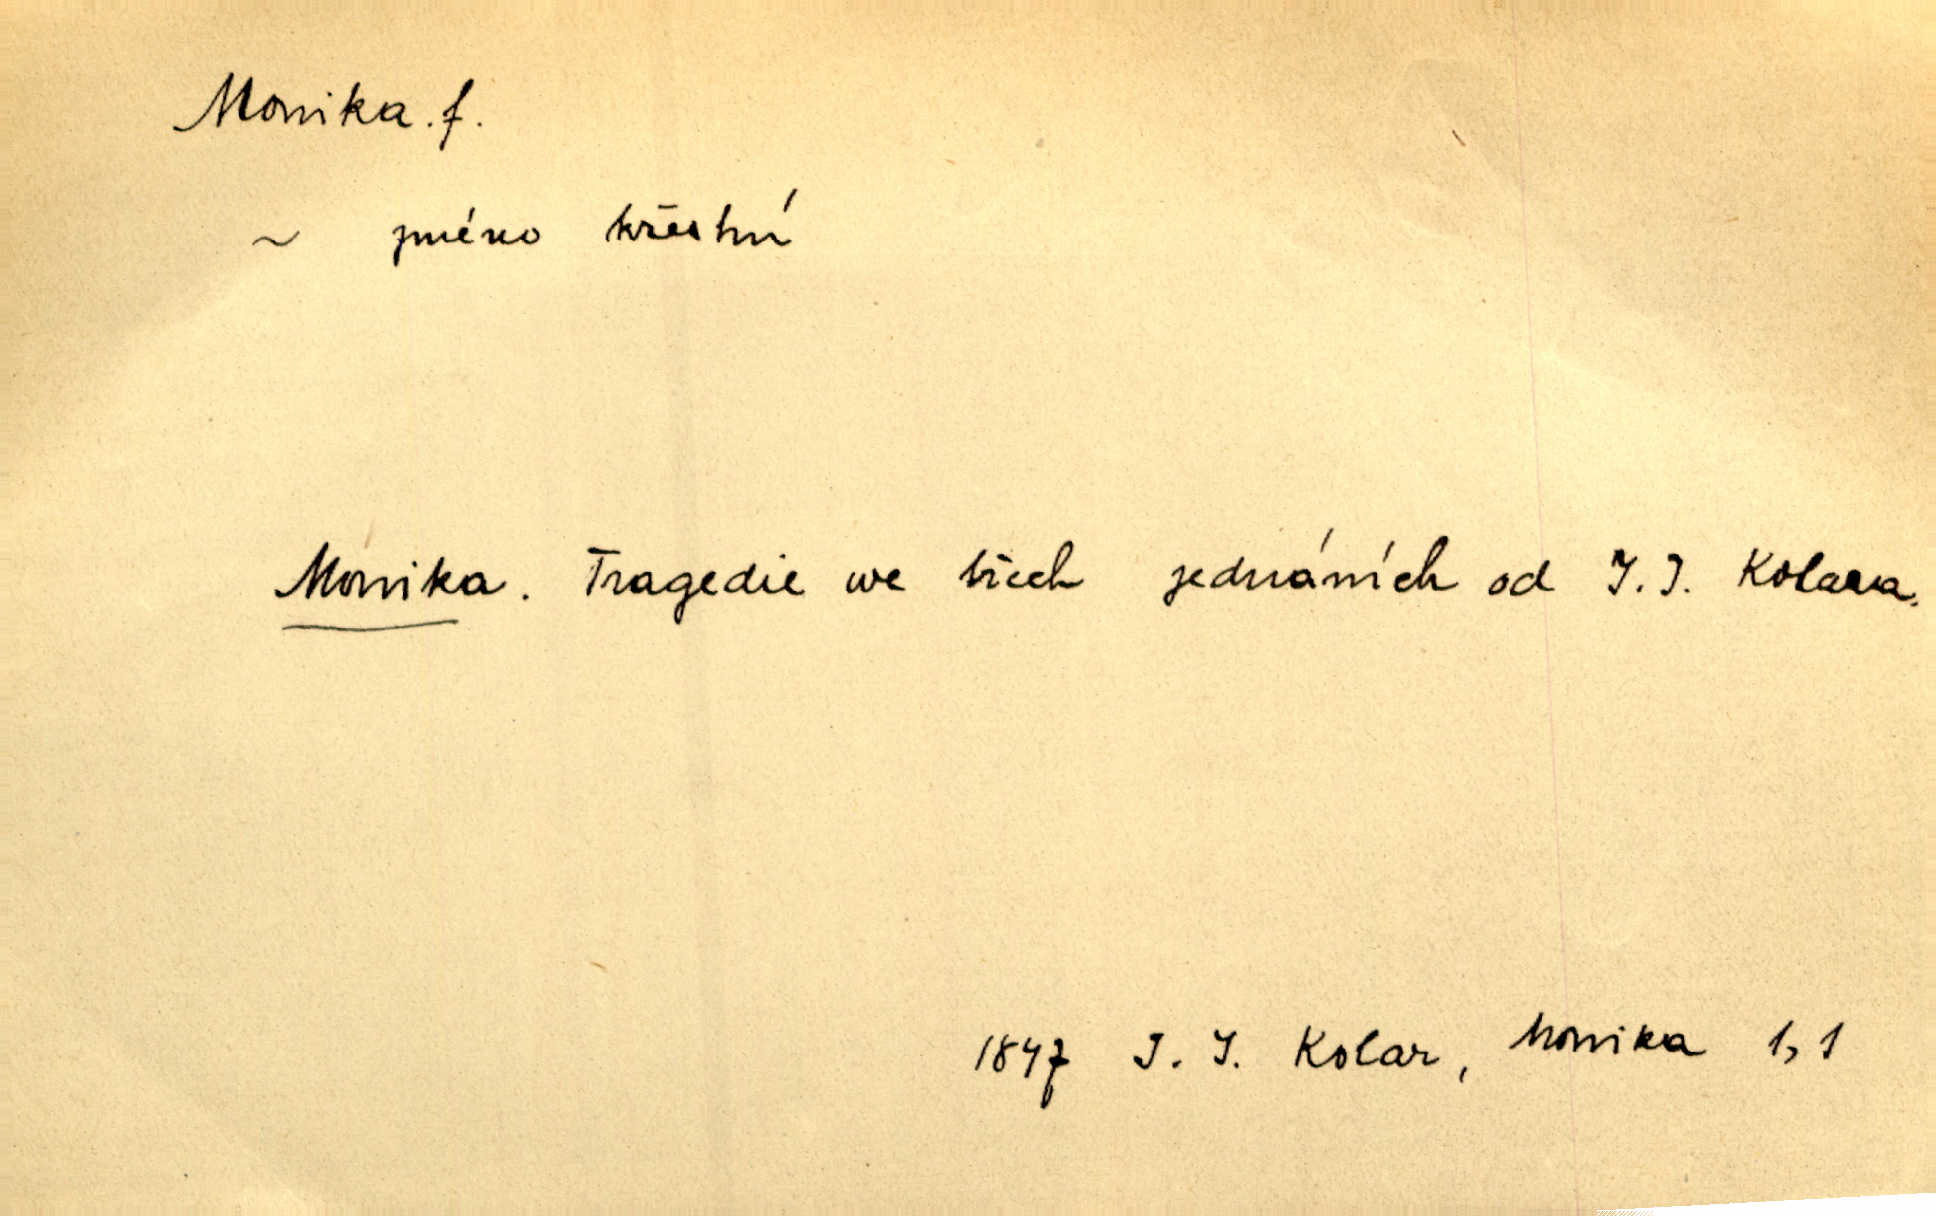 Monika. f.
~ jméno křestní
Monika. Tragedie we třech jednáních od J. J. Kolara.
1847 J. J. Kolar, Monika 1,1